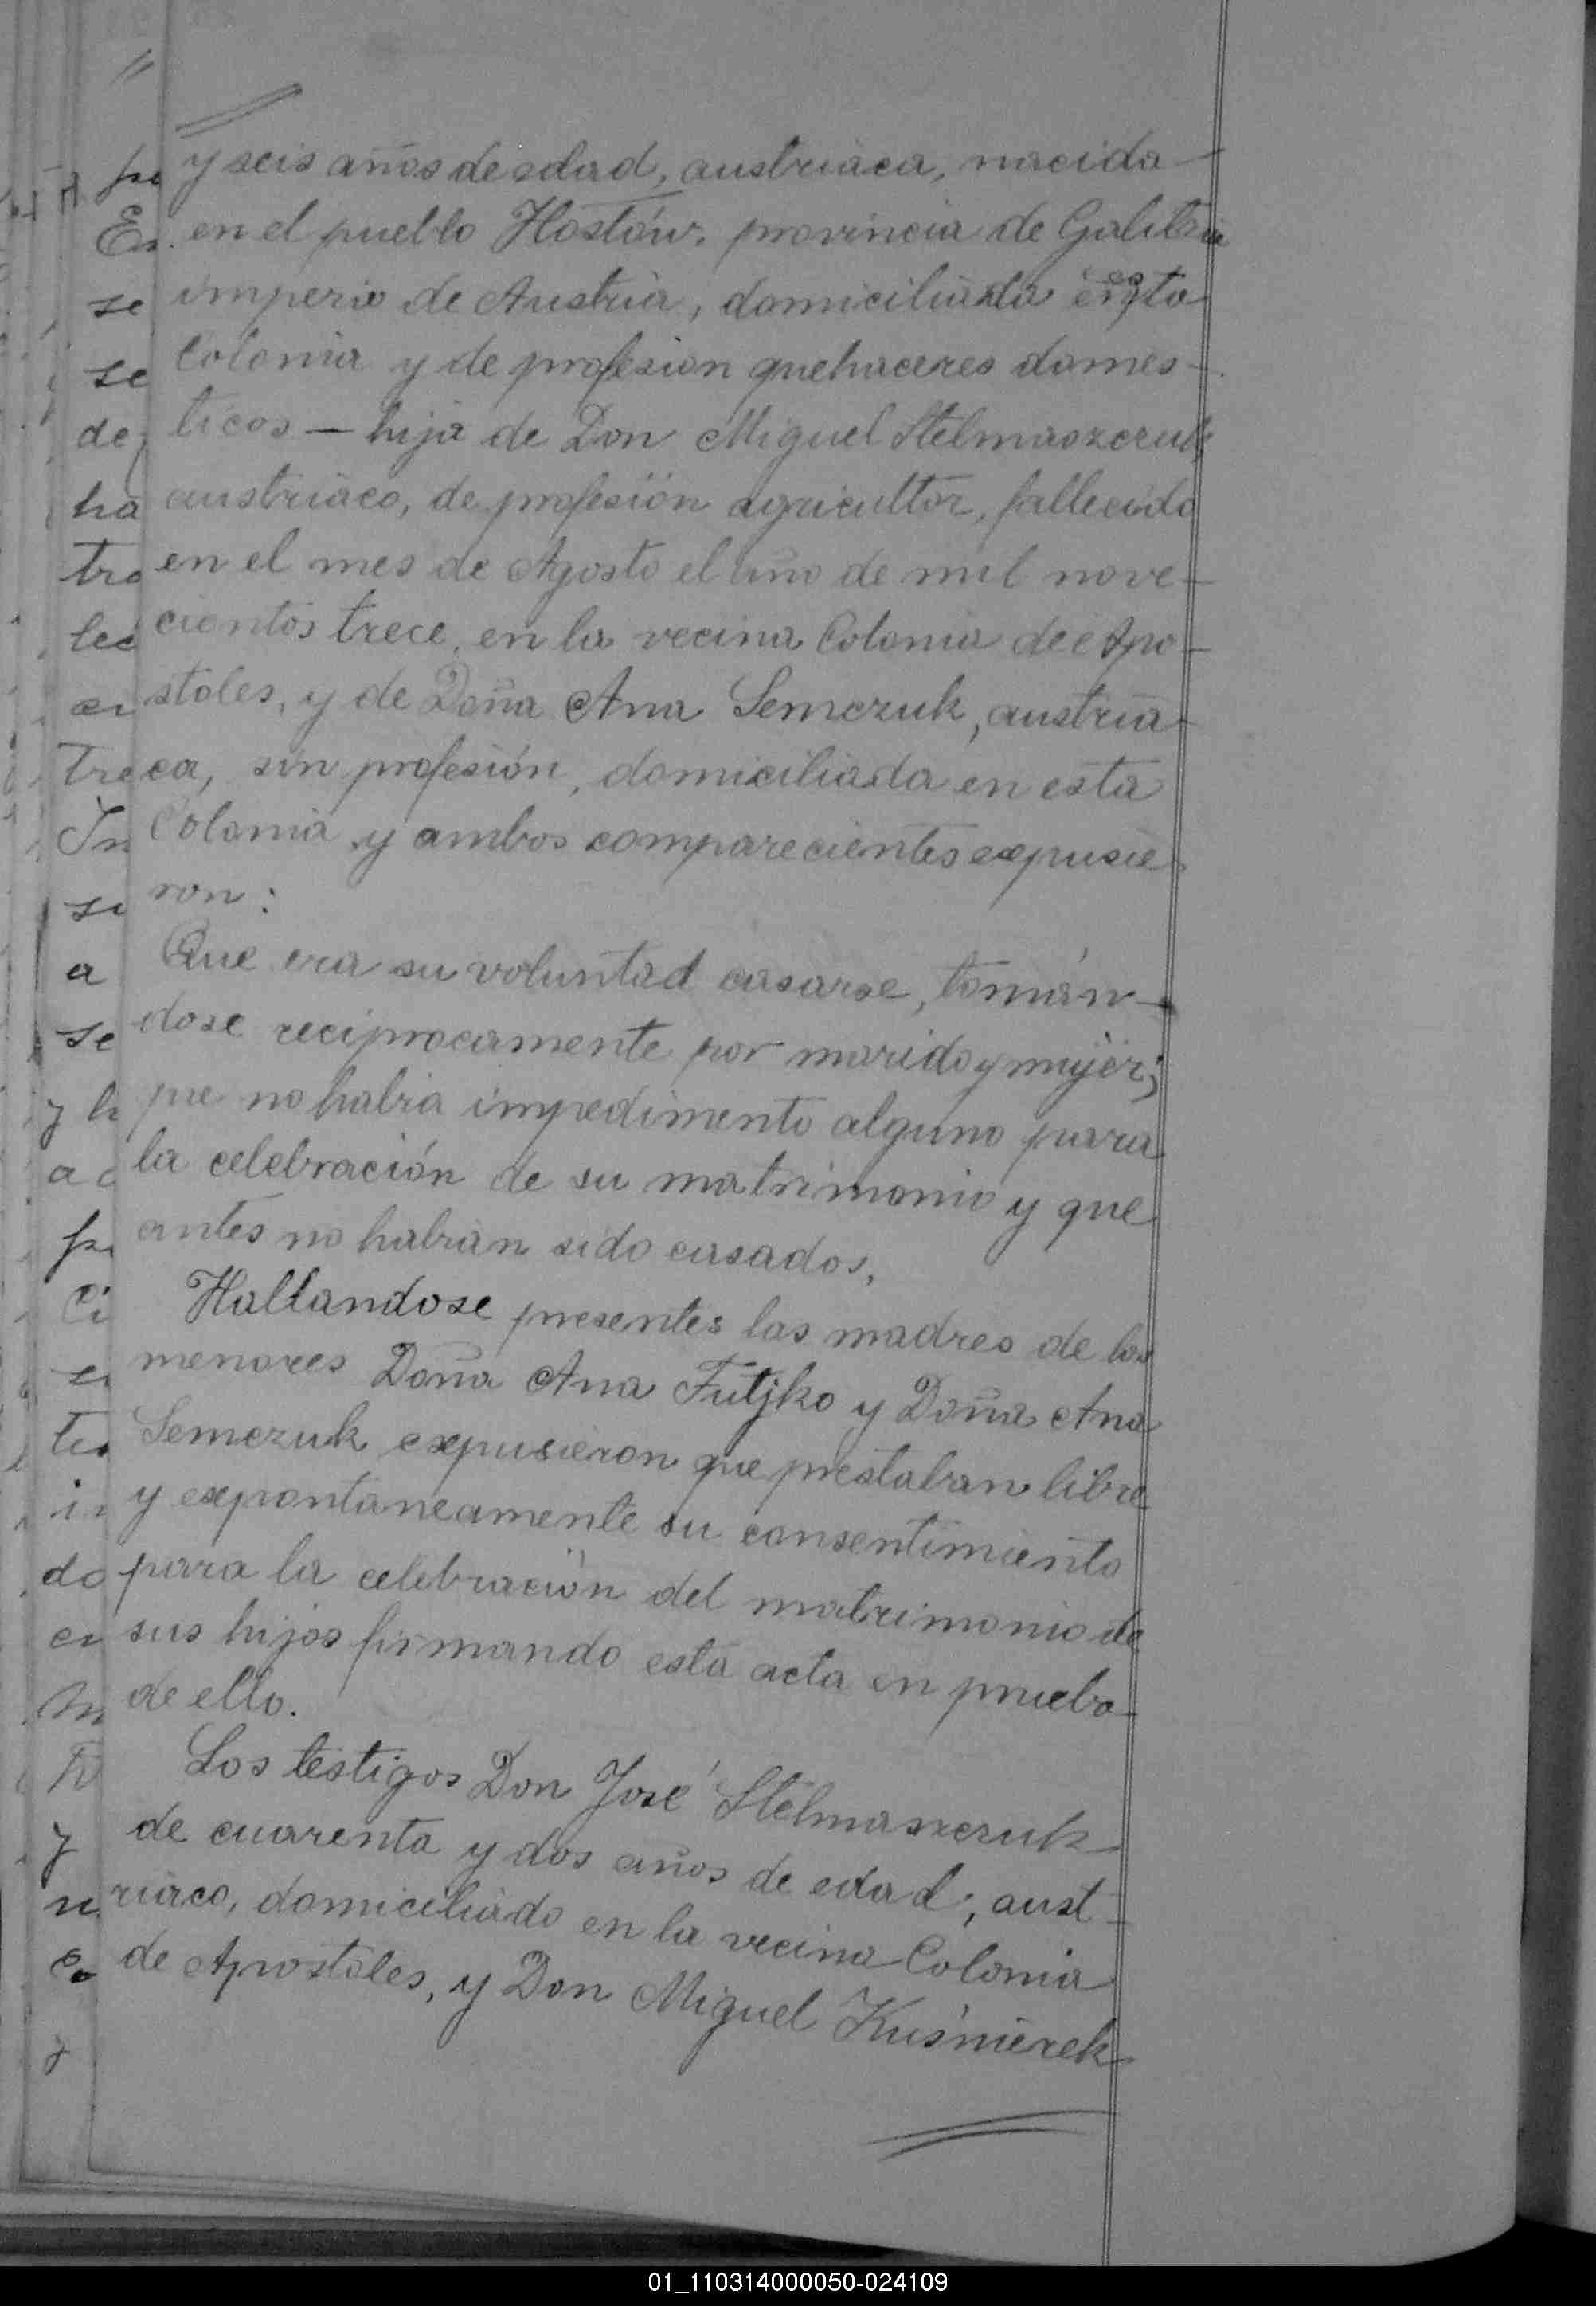 y seis años de edad, austriaca, nacida
en el pueblo Hostów. provincia de Galitzia
imperio de Austria, domiciliada en esta
Colonia y de profesion quehaceres domes-
ticos — hija de Don Miguel Stelmaszczuk,
austriaco, de profesión agricultor, fallecido
en el mes de Agosto el año de mil nove-
cientos trece, en la vecina Colonia de Apo-
stoles, y de Doña Ana Semczuk, austria-
ca, sin profesión, domiciliada en esta
Colonia y ambos comparecientes expusie-
ron:
Que era su voluntad casarse, tomán-
dose reciprocamente por marido y mujer;
que no habia impedimento alguno para
la celebración de su matrimonio y que
antes no habian sido casados.
Hallandose presentes las madres de los
menores Doña Ana Futjko y Doña Ana
Semczuk expusieron que prestaban libre
y expontaneamente su consentimiento
para la celebración del matrimonio de
sus hijos firmando esta acta en prueba
de ello.
Los testigos Don José Stelmaszczuk
de cuarenta y dos años de edad, aust-
riaco, domiciliado en la vecina Colonia
de Apostoles, y Don Miguel Kuśnierek
01_110314000050-024109